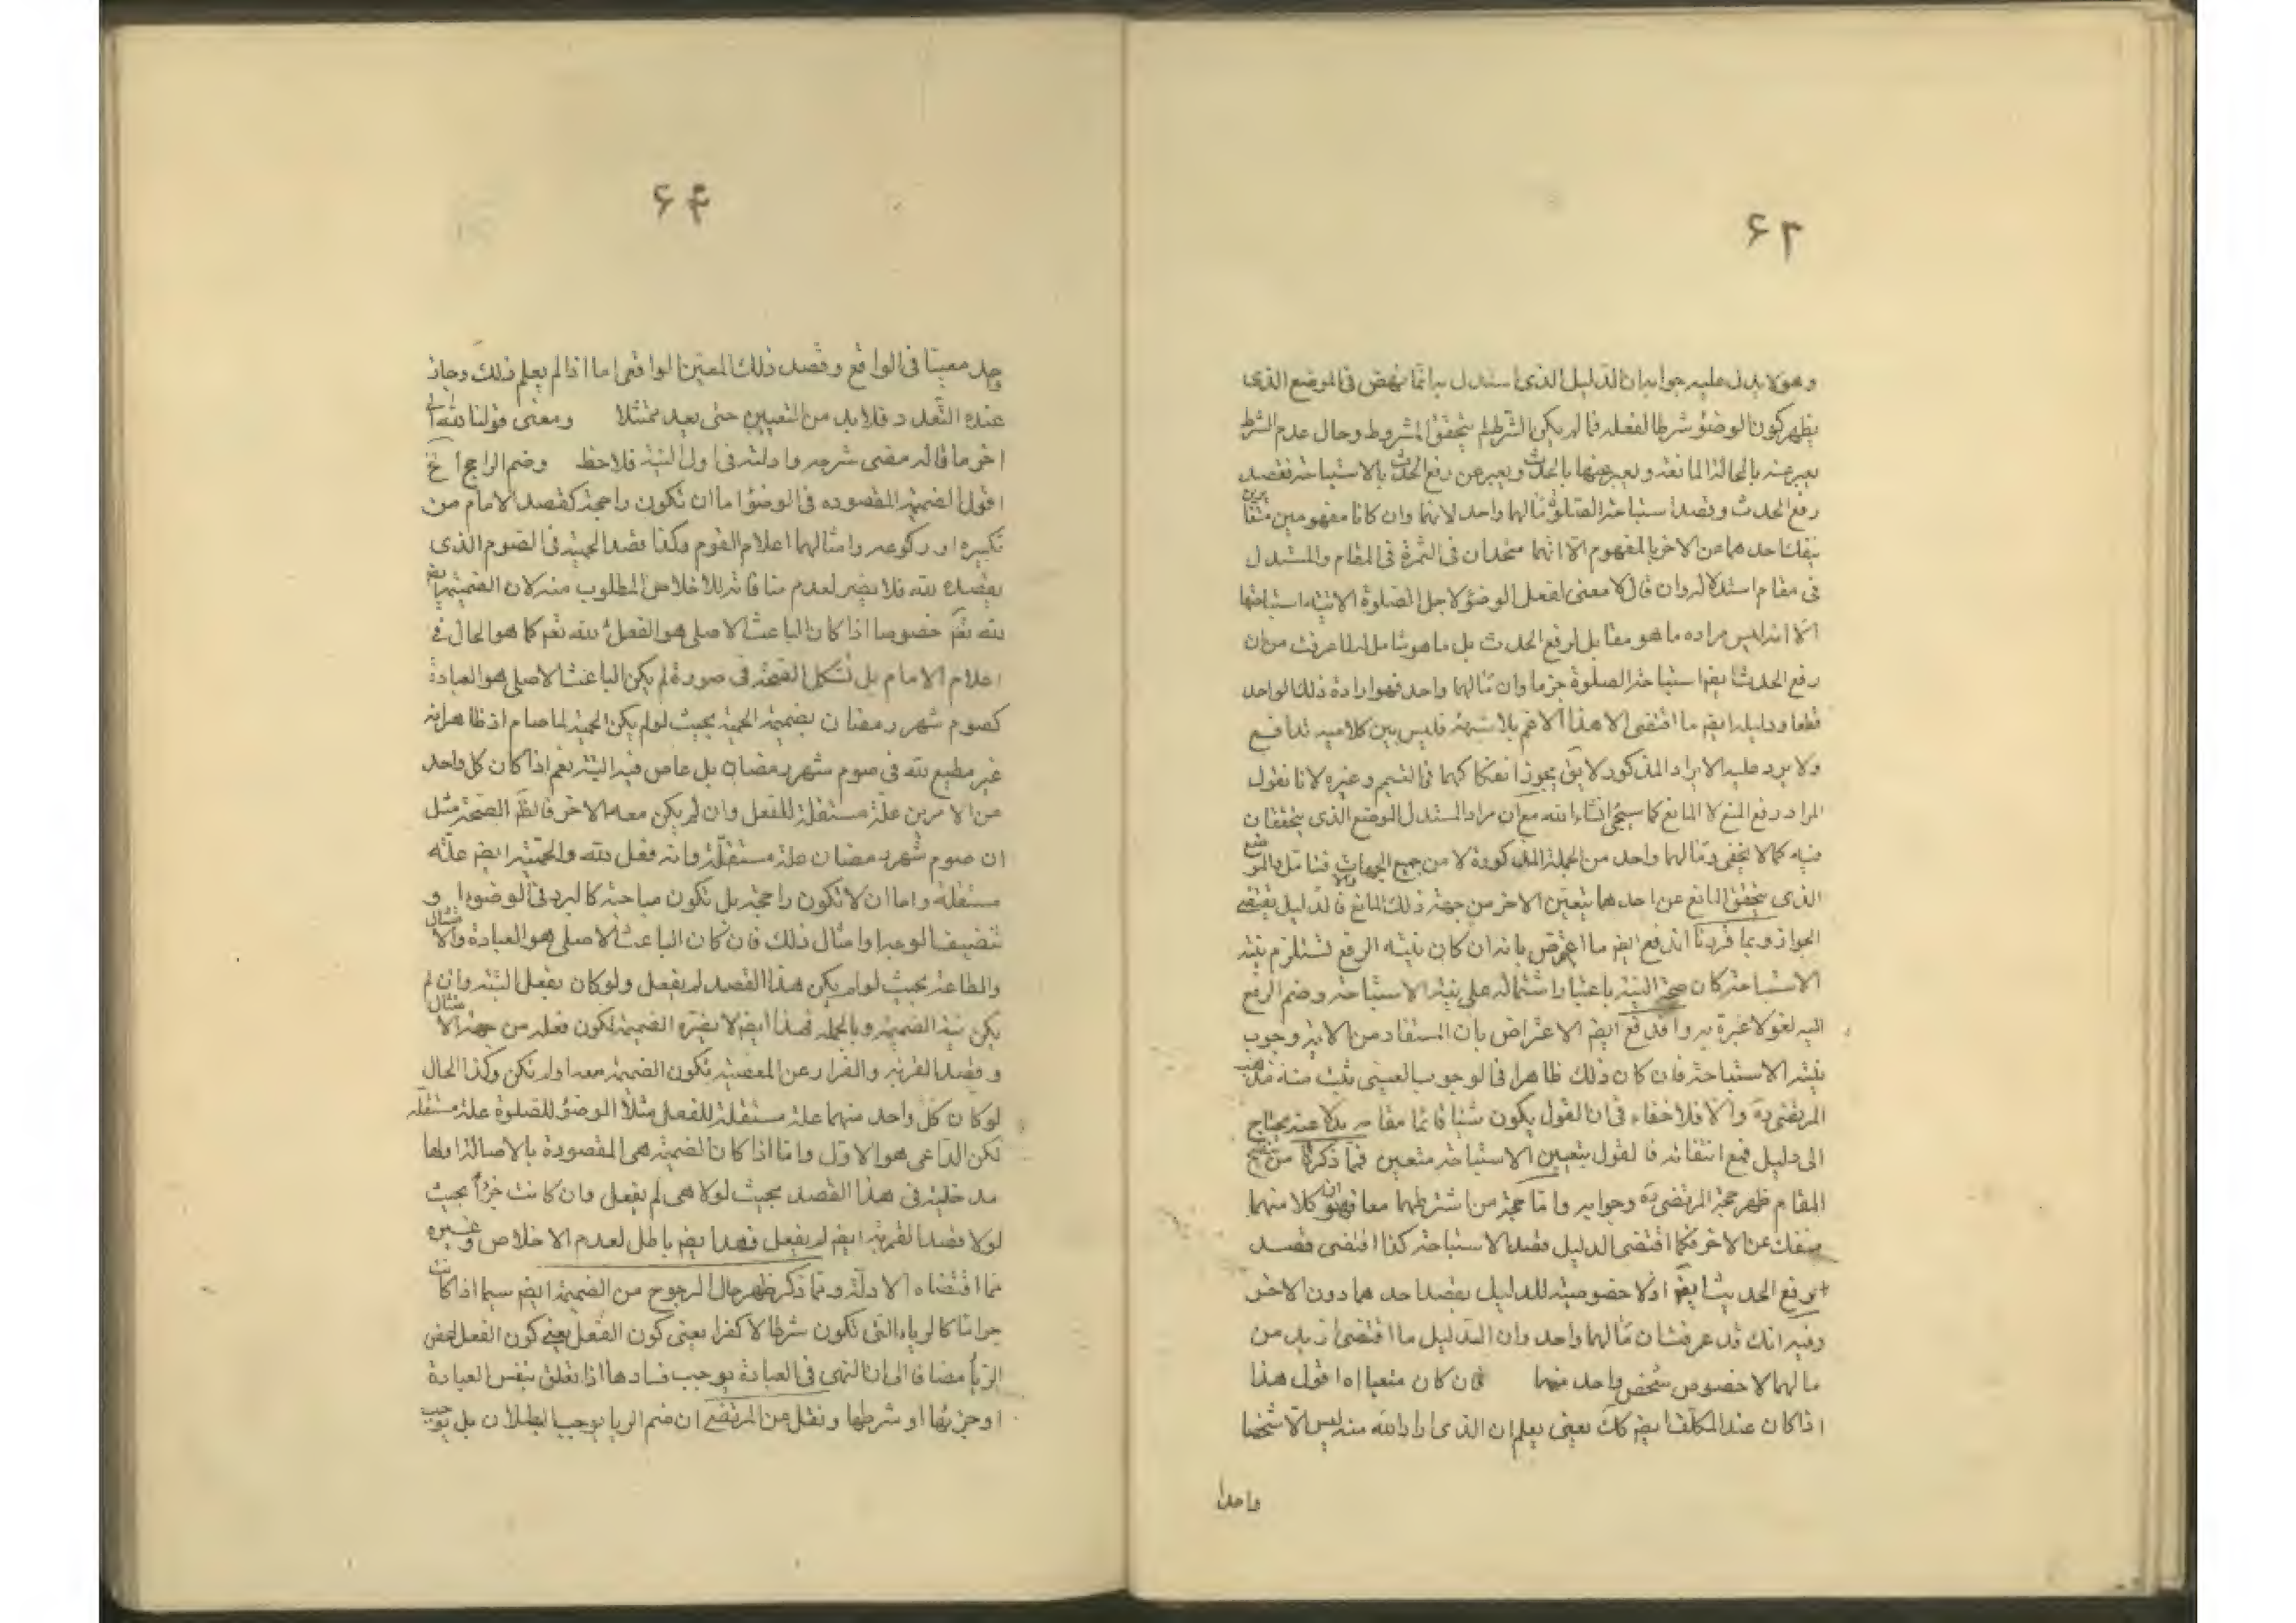 ۶۲
وهو لا يدل عليه جوابه ان الدليل الذى استدل به انما ينهض فى الموضع الذى
يظهر كون الوضوء شرطا لفعله فما لم يكن الشرط لم يتحقق المشروط وحال عدم الشرط
يعبر عنه بالحالة المانعة ويعبر عنها بالحدث ويعبر عن رفع الحدث بالاستباحة فقصد
رفع الحدث وقصد استباحة الصلوة مآلهما واحد لانهما وان كانا مفهومين متغايرين
ينفك احدهما عن الاخر بالمفهوم الا انهما متحدان فى الثمرة فى المقام والمستدل
فى مقام استدلاله وان قال لا معنى لفعل الوضوء لاجل الصلوة الا نية استباحتها
الا انه ليس مراده ما هو مقابل لرفع الحدث بل ما هو شامل له لما عرفت من ان
رفع الحدث ايضم استباحة الصلوة جزما وان مآلهما واحد فهو ارادة ذلك الواحد
قطعا ودليله ايضم ما اقتضى الا هذا الاعم بلا شبهة فليس بين كلاميه تدافع
ولا يرد عليه الايراد المذكور لا يق يجوز انفكاكهما فى التيمم وغيره لانا نقول
المراد رفع المنع لا المانع كما سيجئ انشاء الله مع ان مراد المستدل الموضع الذى يتحققان
فيه كما لا يخفى ومآلهما واحد من الجملة المذكورة لا من جميع الجهات فتامل والموضع
الذى يتحقق المانع عن احدهما يتعين الاخر من جهة ذلك المانع والا فالدليل يقتضى
الجواز وبما قررنا اندفع ايضم ما اعترض بانه ان كان نية الرفع تستلزم نية
الاستباحة كان صحة النية باعتبار اشتماله على نية الاستباحة وضم الرفع
اليه لغو لا عبرة به واندفع ايضم الاعتراض بان المستفاد من الاية وجوب
نية الاستباحة فان كان ذلك ظاهرا فى الوجوب العينى يثبت منه مذهب
المرتضى ره والا فلا خفاء فى ان القول بكون شيئا قائما مقامه بدلا عنه يحتاج
الى دليل فمع انتفائه فالقول بتعيين الاستباحة متعين فما ذكرنا من تنقيح
المقام ظهر حجة المرتضى ره وجوابه واما حجة من اشترطهما معا فهو ان كلا منهما
منفك عن الاخر فكما اقتضى الدليل قصد الاستباحة كذا اقتضى قصد
رفع الحديث ايضم اذ لا خصوصية للدليل بقصد احدهما دون الاخر
وفيه انك قد عرفت ان مآلهما واحد وان الدليل ما اقتضى ازيد من
مالهما لا خصوص شخص واحد منهما فان كان متعينا اه اقول هذا
اذا كان عند المكلف ايضم كك يعنى يعلم ان الذى اراد الله منه ليس الا شخصا
واحدا
۶۴
وجد معينا فى الواقع وقصد ذلك المعين الواقعى اما اذا لم يعلم ذلك وجاز
عنده التعدد فلا بد من التعيين حتى يعد ممتثلا ومعنى قولنا لله الى
اخر ما قاله مضى شرحه وادلته فى اول النية فلاحظ وضم الراجح الخ
اقول الضميمة المقصودة فى الوضوء اما ان تكون راجحة كقصد الامام من
تكبيره او ركوعه وامثالهما اعلام القوم وكذا قصد الحمية فى الصوم الذى
يقصده لله فلا يضر لعدم منافاته للاخلاص المطلوب منه لان الضميمة ايضم
لله تعم خصوصا اذا كان الباعث الاصلى هو الفعل لله تعم كما هو الحال فى
اعلام الامام بل تشكل الصحة فى صورة لم يكن الباعث الاصلى هو العبادة
كصوم شهر رمضان بضميمة الحمية بحيث لو لم يكن الحمية لما صام اذ ظاهر انه
غير مطيع لله فى صوم شهر رمضان بل عاص فيه البتة نعم اذا كان كل واحد
من الامرين علة مستقلة للفعل وان لم يكن معه الاخر فالظم الصحة مثل
ان صوم شهر رمضان علة مستقلة وانه فعل لله والحمية ايضم علة
مستقلة واما ان لا تكون راجحة بل تكون مباحة كالبرد فى الوضوء او
تنضيف الوجه وامثال ذلك فان كان الباعث الاصلى هو العبادة والامتثال
والطاعة بحيث لو لم يكن هذا القصد لم يفعل ولو كان يفعل البتة وان لم
يكن نية الضميمة وبالجملة فهذا ايضم لا يضره الضميمة لكون فعله من جهة الامتثال
وقصد القربة والفرار عن المعصية تكون الضميمة معه او لم تكن وكذا الحال
لو كان كل واحد منهما علة مستقلة للفعل مثلا الوضوء للصلوة علة مستقلة
لكن الداعى هو الاول واما اذا كان الضميمة هى المقصودة بالاصالة او لها
مدخلية فى هذا القصد بحيث لولا هى لم يفعل وان كانت جزءا بحيث
لولا قصد القربة ايضم لم يفعل فهذا ايضم باطل لعدم الاخلاص وغيره
مما اقتضاه الادلة ومما ذكر ظهر حال المرجوح من الضميمة ايضم سيما اذا كانت
حراما كالرياء التى تكون شرطا لا كفرا يعنى كون الفعل يعنى كون الفعل لمحض
الريا مضافا الى ان النهى فى العبادة يوجب فسادها اذا تعلق بنفس العبادة
او جزئها او شرطها ونقل عن المرتضى ان ضم الريا يوجب البطلان بل يوجب